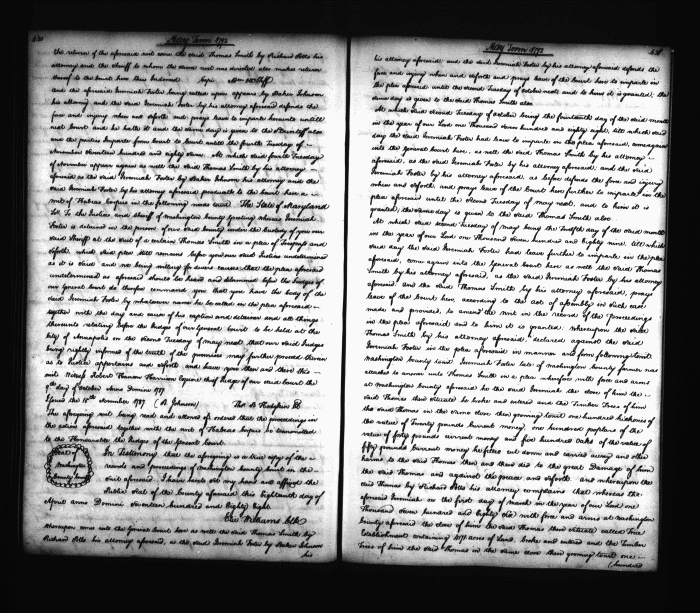 430
May Term 1792
the return of the aforesaid writ come the said Thomas Smith by Richard Potts his
attorney and the Sheriff to whom the same writ was directed also makes return
thereof to the Court here thus Endorsed
and the aforesaid Jeremiah Foster being called upon appears by Baker Johnson
his attorney and the said Jeremiah Foter by his attorney aforesaid defends the
force and injury when and soforth and prays leave to imparle hereunto untill
next Court and he hath it and the same day is given to the Plaintiff also
and the parties Imparle from Court to Court untill the fourth Tuesday of
November seventeen hundred and eighty seven. At which said fourth Tuesday
of November appears again as well the said Thomas Smith by his attorney
aforesaid as the said Jeremiah Foster by Baker Johnson his attorney and the
said Jeremiah Foter by his attorney aforesaid produceth to the Court here a
writ of Habeas Corpus in the following words to wit The State of Maryland
Sct. To the Justices and Sheriff of Washington County Greeting whereas Jeremiah
Foter is detained in the prison of our said County under the custody of you our
said Sheriff at the suit of a certain Thomas Smith in a plea of Trespass and
soforth which said plea still remains before you our said Justices undetermined
as it is said and we being willing for divers causes that the plea aforesaid
undetermined as aforesaid should be heard and determined before the Judges of
our General Court do therefore command you that you have the body of the
said Jeremiah Foter by whatsoever name he be called in the plea aforesaid
together with the day and cause of his caption and detainer and all things
thereunto relating before the Judges of our General Court to be held at the
City of Annapolis on the second Tuesday of may next that our said Judges
being rightly informed of the truth of the premises may further proceed therein
as to Justice appertains and soforth and have you then and there this
writ Witness Robert Hanson Harrison Esquire Chief Judge of our said Court the
9th day of October Anno Domini 1787
Issued the 15th November 1787 (B Johnson)
The aforegoing writ being read and allowed it ordered that the proceedings in
the action aforesaid together with the writ of Habeas Corpus be transmitted
to the Honourable the Judges of the General Court.
Seal of
Washington
County
In Testimony that the aforegoing is a true copy of the
records and proceedings of Washington County Court in the
suit aforesaid I have hereto set my hand and affixed the
Public Seal of the County aforesaid this Eighteenth day of
April anno Domini seventeen hundred and Eighty Eight
Eli Williams Clk
Whereupon come into the General Court here as well the said Thomas Smith by
Richard Potts his attorney aforesaid, as the said Jeremiah Foter by Baker Johnson
his
May Term 1792
431
his attorney aforesaid; and the said Jeremiah Foter by his attorney aforesaid defends the
force and injury when and soforth and prays leave of the Court here to imparle in
the plea aforesaid until the second Tuesday of October next and to him it is granted; the
same day is given to the said Thomas Smith also.
At which said second Tuesday of October being the fourteenth day of the said month
in the year of our Lord one Thousand seven hundred and eighty eight, till which said
day the said Jeremiah Foter had leave to imparle in the plea aforesaid, came again
into the General Court here, as well the said Thomas Smith by his attorney
aforesaid, as the said Jeremiah Foter by his attorney aforesaid; and the said
Jeremiah Foter by his attorney aforesaid, as before defends the force and injury
when and soforth; and prays leave of the Court here further to imparle in the
plea aforesaid until the second Tuesday of may next, and to him it is
granted; the same day is given to the said Thomas Smith also.
At which said second Tuesday of may being the Twelfth day of the said month
in the year of our Lord one Thousand seven hundred and eighty nine, till which
said day the said Jeremiah Foter had leave further to imparle in the plea
aforesaid, come again into the General Court here as well the said Thomas
Smith by his attorney aforesaid, as the said Jeremiah Foter by his attorney
aforesaid, and the said Thomas Smith by his attorney aforesaid, prays
leave of the Court here, according to the act of assembly in such case
made and provided, to amend the writ in the record of the proceedings
in the plea aforesaid and to him it is granted. whereupon the said
Thomas Smith by his attorney aforesaid, declared against the said
Jeremiah Foter in the plea aforesaid in manner and form following to wit
Washington County to wit. Jeremiah Foter late of Washington County farmer was
attached to answer unto Thomas Smith in a plea wherefore with force and arms
at Washington County aforesaid he the said Jeremiah the close of him the
said Thomas then situate he broke and entered and the Timber Trees of him
the said Thomas in the same close then growing to wit one hundred hickories of
the value of Twenty pounds Current money, one hundred poplars of the
value of forty pounds current money and five hundred Oaks of the value of
fifty pounds Current money he felled cut down and carried away and other
harms to the said Thomas then and there did to the great Damage of him
the said Thomas and against the peace and soforth. and whereupon the
said Thomas by Richard Potts his attorney complains that whereas the
aforesaid Jeremiah on the first day of march in the year of our Lord one
Thousand seven hundred and Eighty six with force and arms at Washington
County aforesaid the close of him the said Thomas then situate called Tree
Establishment containing acres of Land, broke and entered and the Timber
Trees of him the said Thomas in the same close then growing to wit one
(hundred